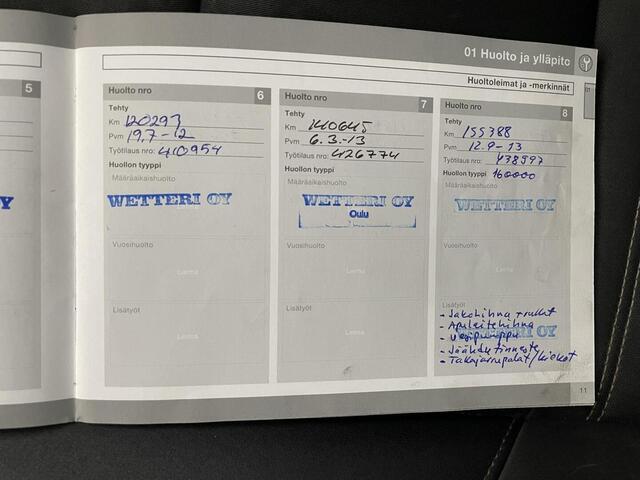 01 Huolto ja ylläpito
Huoltoleimat ja -merkinnät
01
5
Huolto nro 6
Tehty
Km 120293
Pvm 19.7-12
Työtilaus nro: 410954
Huollon tyyppi
Määräaikaishuolto
WETTERI OY
Vuosihuolto
Leima
Lisätyöt
Leima
Huolto nro 7
Tehty
Km 140645
Pvm 6.3.-13
Työtilaus nro: 426774
Huollon tyyppi
Määräaikaishuolto
WETTERI OY
Oulu
Vuosihuolto
Leima
Lisätyöt
Leima
Huolto nro 8
Tehty
Km 155388
Pvm 12.9-13
Työtilaus nro: 438597
Huollon tyyppi 160000
Määräaikaishuolto
WETTERI OY
Vuosihuolto
Leima
Lisätyöt
- Jakohihna + rullat
- Apulaitehihna
- Vesipumppu
WETTERI OY
- Jäähdytinneste
- Takajarrupalat/kiekot
11